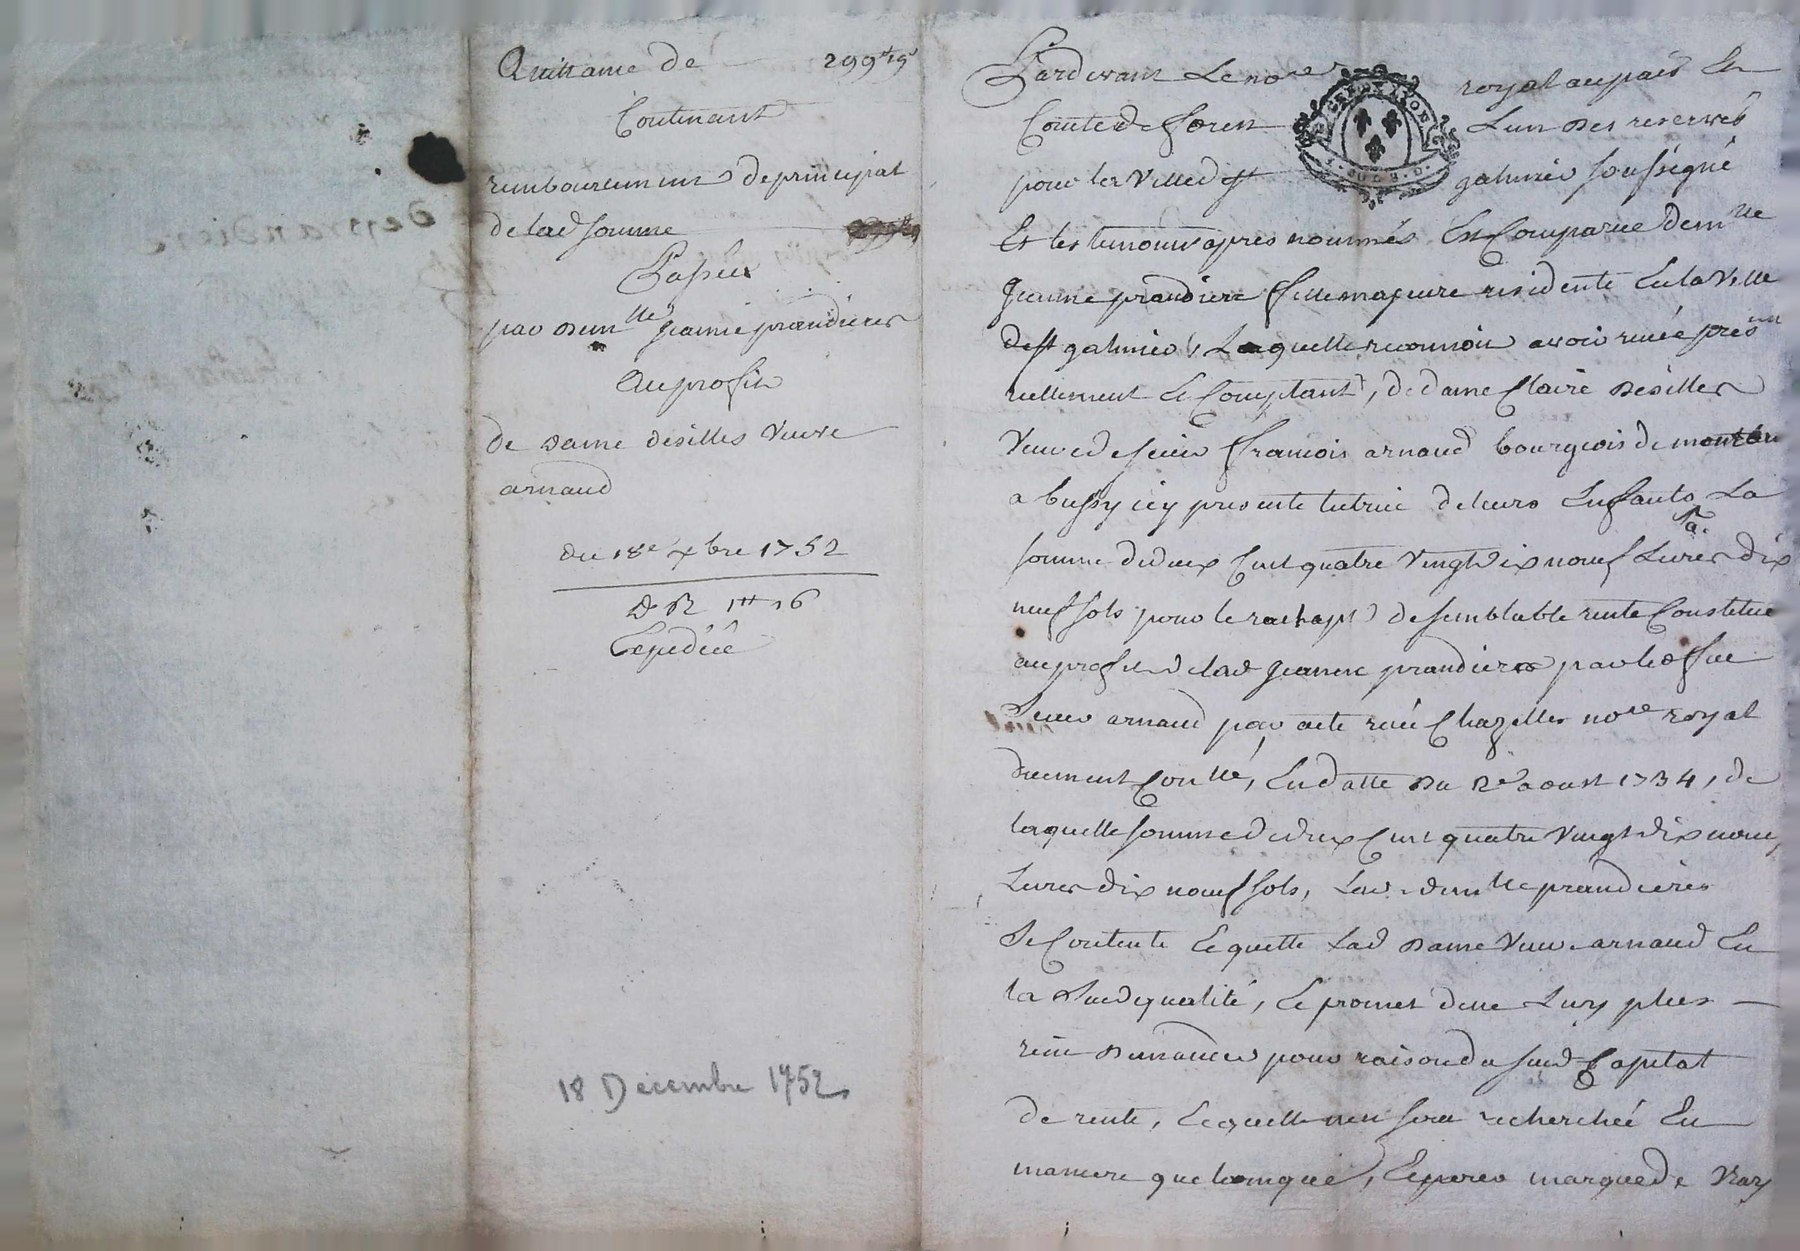 Quittance de 299lt 19s
Contenant
remboursement de principal
de lad somme
Passée
par demlle Jeanne prandieres
Au profit
de Dame desilles Veuve
arnaud
du 18e xbre 1752
D R 1lt 16
Expediée
18 Decembre 1752
Pardevant Le nore royal au païs Et
Comté de forest L'un des reservés
pour la Ville de st galmier soussigné
Et les temoins apres nommés Est Comparue demlle
Jeanne prandiere fille majeure residente En la Ville
de st galmier, Laquelle reconnoit avoir receu présen
tellement Et Comptant, de dame Claire desilles
Veuve de sieur françois arnaud bourgeois de
a bussy icy presente tutrice de leurs Enfants La
somme de deux Cent quatre Vingt dix neuf Livres dix
neuf sols pour le rachapt de semblable rente Constituée
au profit de lad Jeanne prandieres par led feu
Sieur arnaud par acte receu Chazelles nore royal
duement Conllé, En datte du 2e aoust 1734, de
laquelle somme de deux Cent quatre Vingt dix neuf
Livres dix neuf sols, Lad. demlle prandieres
Se Contente Et quitte Lad Dame Veuve arnaud En
la Susd qualité, Et promet de ne Luy plus
rien demander pour raison du susd Capital
de rente, Et quelle n'en sera recherchée En
maniere quelconque, Et pour marque de Vray